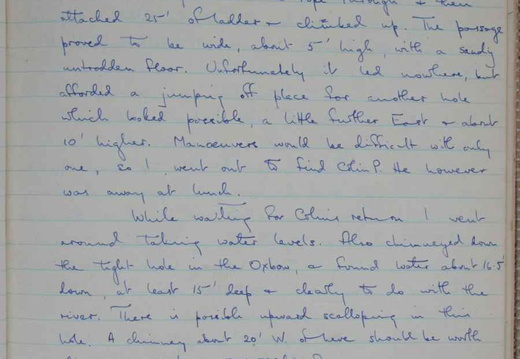 rope through & then
attached 25' of ladder & climbed up. The passage
proved to be wide, about 5' high, with a sandy
untrodden floor. Unfortunately it led nowhere, but
afforded a jumping off place for another hole
which looked possible, a little further East & about
10' higher. Manoeuvers would be difficult with only
one, so I went out to find Colin P. He however
was away at lunch.
While waiting for Colin's return I went
around taking water levels. Also chimneyed down
the tight hole in the Oxbow, & found water about 16.5
down, at least 15' deep & clearly to do with the
river. There is possible upward scalloping in this
hole. A chimney about 20' W. of here should be worth